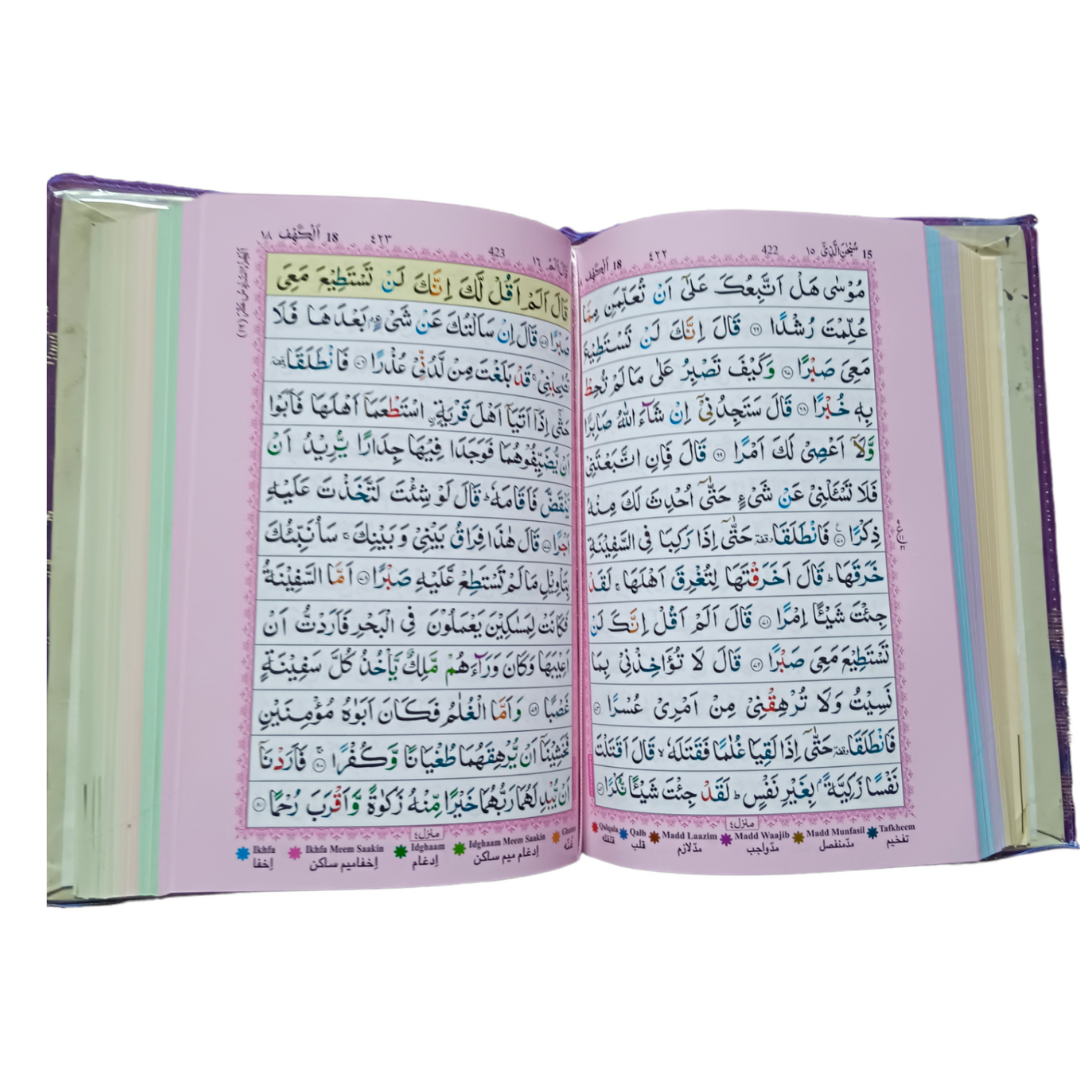 15 سُبْحٰنَ الَّذِیْۤ ١٥
422
٤٢٢
18 اَلْكَهْف
مُوْسٰى هَلْ اَتَّبِعُكَ عَلٰۤى اَنْ تُعَلِّمَنِ مِمَّا
عُلِّمْتَ رُشْدًا ٦٦ قَالَ اِنَّكَ لَنْ تَسْتَطِیْعَ
مَعِیَ صَبْرًا ٦٧ وَكَیْفَ تَصْبِرُ عَلٰى مَا لَمْ تُحِطْ
بِهٖ خُبْرًا ٦٨ قَالَ سَتَجِدُنِیْۤ اِنْ شَآءَ اللّٰهُ صَابِرًا
وَّلَاۤ اَعْصِیْ لَكَ اَمْرًا ٦٩ قَالَ فَاِنِ اتَّبَعْتَنِیْ
فَلَا تَسْـَٔلْنِیْ عَنْ شَیْءٍ حَتّٰۤى اُحْدِثَ لَكَ مِنْهُ
ذِكْرًا ٧٠ فَانْطَلَقَا وقفة حَتّٰۤى اِذَا رَكِبَا فِی السَّفِیْنَةِ
خَرَقَهَا ؕ قَالَ اَخَرَقْتَهَا لِتُغْرِقَ اَهْلَهَا ۚ لَقَدْ
جِئْتَ شَیْـًٔا اِمْرًا ٧١ قَالَ اَلَمْ اَقُلْ اِنَّكَ لَنْ
تَسْتَطِیْعَ مَعِیَ صَبْرًا ٧٢ قَالَ لَا تُؤَاخِذْنِیْ بِمَا
نَسِیْتُ وَلَا تُرْهِقْنِیْ مِنْ اَمْرِیْ عُسْرًا ٧٣
فَانْطَلَقَا وقفة حَتّٰۤى اِذَا لَقِیَا غُلٰمًا فَقَتَلَهٗ ۙ قَالَ اَقَتَلْتَ
نَفْسًا زَكِیَّةًۢ بِغَیْرِ نَفْسٍ ؕ لَقَدْ جِئْتَ شَیْـًٔا نُّكْرًا ٧٤
منزل٤
Qalqala Qalb Madd Laazim Madd Waajib Madd Munfasil Tafkheem
قلقله قلب مدّلازم مدّواجب مدّمنفصل تفخیم
423
٤٢٣
18 اَلْكَهْف ١٨
قَالَ اَلَمْ اَقُلْ لَّكَ اِنَّكَ لَنْ تَسْتَطِیْعَ مَعِیَ
صَبْرًا ٧٥ قَالَ اِنْ سَاَلْتُكَ عَنْ شَیْءٍۭ بَعْدَهَا فَلَا
تُصٰحِبْنِیْ ۚ قَدْ بَلَغْتَ مِنْ لَّدُنِّیْ عُذْرًا ٧٦ فَانْطَلَقَا وقفة
حَتّٰۤى اِذَاۤ اَتَیَاۤ اَهْلَ قَرْیَةِ ِ۟اسْتَطْعَمَاۤ اَهْلَهَا فَاَبَوْا
اَنْ یُّضَیِّفُوْهُمَا فَوَجَدَا فِیْهَا جِدَارًا یُّرِیْدُ اَنْ
یَّنْقَضَّ فَاَقَامَهٗ ؕ قَالَ لَوْ شِئْتَ لَتَّخَذْتَ عَلَیْهِ
اَجْرًا ٧٧ قَالَ هٰذَا فِرَاقُ بَیْنِیْ وَبَیْنِكَ ۚ سَاُنَبِّئُكَ
بِتَاْوِیْلِ مَا لَمْ تَسْتَطِعْ عَّلَیْهِ صَبْرًا ٧٨ اَمَّا السَّفِیْنَةُ
فَكَانَتْ لِمَسٰكِیْنَ یَعْمَلُوْنَ فِی الْبَحْرِ فَاَرَدْتُّ اَنْ
اَعِیْبَهَا وَكَانَ وَرَآءَهُمْ مَّلِكٌ یَّاْخُذُ كُلَّ سَفِیْنَةٍ
غَصْبًا ٧٩ وَاَمَّا الْغُلٰمُ فَكَانَ اَبَوٰهُ مُؤْمِنَیْنِ
فَخَشِیْنَاۤ اَنْ یُّرْهِقَهُمَا طُغْیَانًا وَّكُفْرًا ٨٠ فَاَرَدْنَاۤ
اَنْ یُّبْدِلَهُمَا رَبُّهُمَا خَیْرًا مِّنْهُ زَكٰوةً وَّاَقْرَبَ رُحْمًا ٨١
منزل٤
Ikhfa Ikhfa Meem Saakin Idghaam Idghaam Meem Saakin Ghunna
اِخفا اِخفامیم ساکن اِدغام اِدغام میم ساکن غنّه